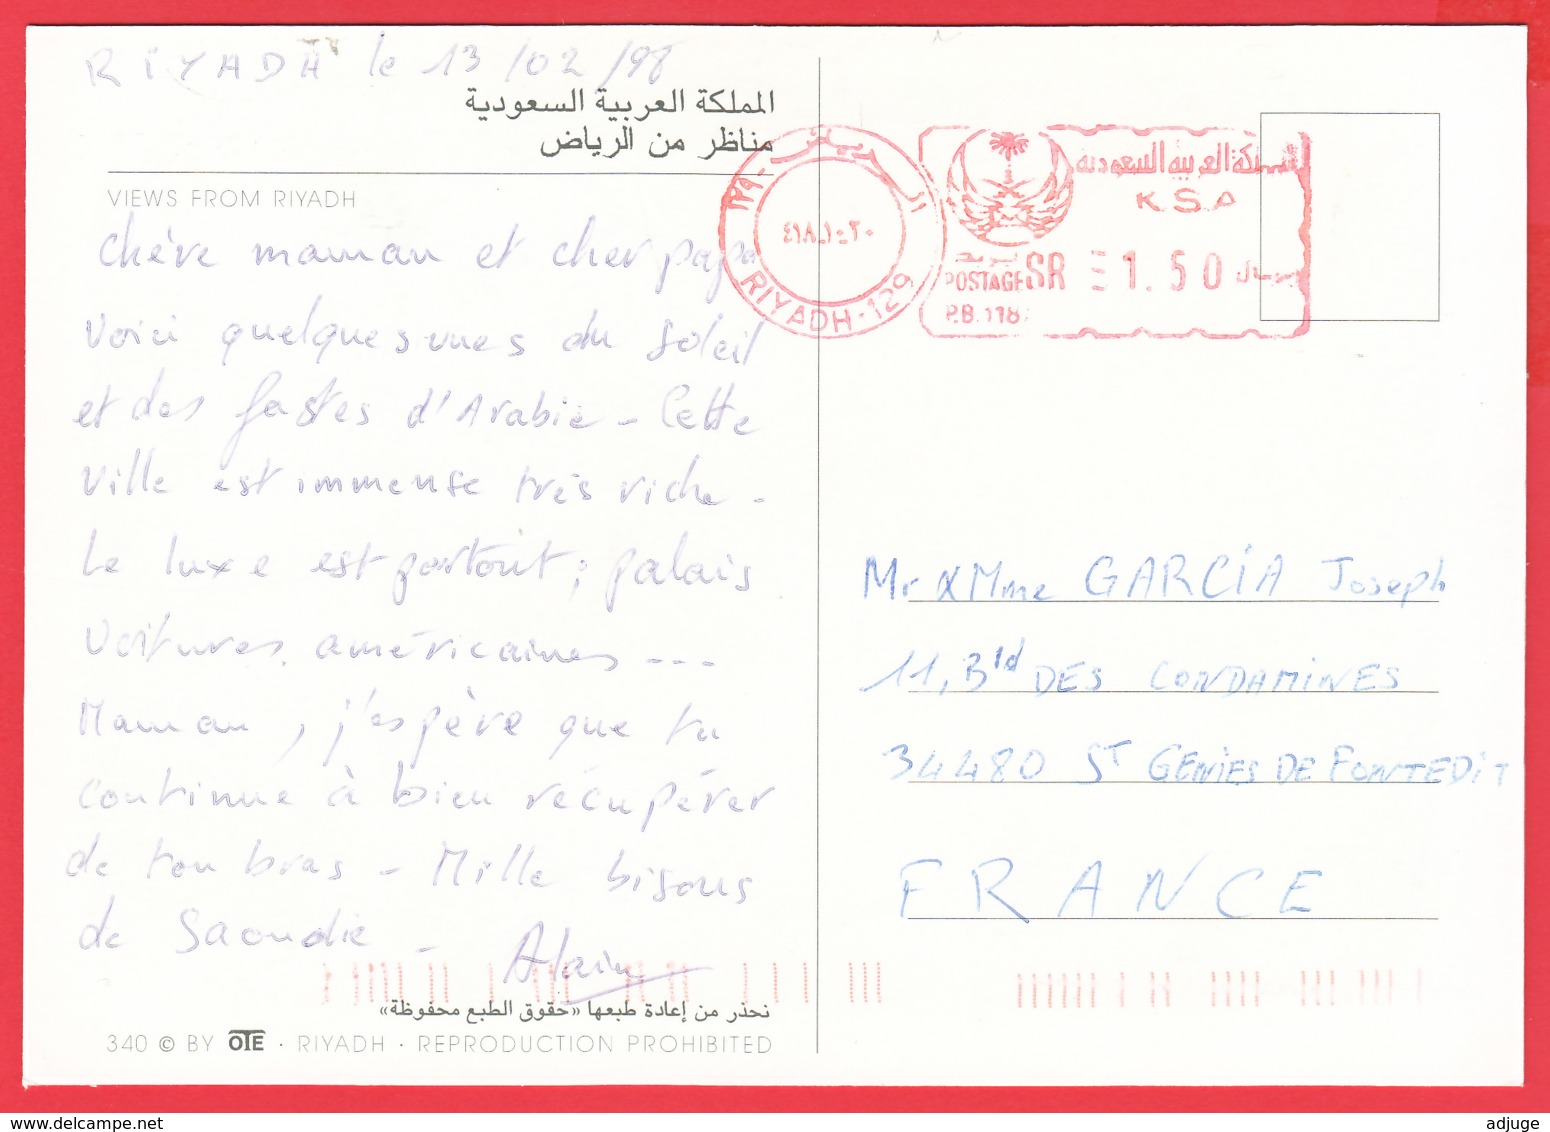 RIYADH le 13/02/98
المملكة العربية السعودية
مناظر من الرياض
VIEWS FROM RIYADH
Chère maman et cher papa
Voici quelques vues du soleil
et des fastes d'Arabie - Cette
ville est immense très riche -
Le luxe est partout ; palais
voitures américaines ---
Maman, j'espère que tu
continue à bien récupérer
de ton bras - Mille bisous
de Saoudie -
Alain
نحذر من إعادة طبعها «حقوق الطبع محفوظة»
340 © BY OTE · RIYADH · REPRODUCTION PROHIBITED
الرياض - ١٢٩
RIYADH - 129
المملكة العربية السعودية
K.S.A
POSTAGE SR 1.50 ريال
P.B. 118
Mr & Mme GARCÍA Joseph
11, Bld DES CONDAMINES
34480 ST GENIES DE FONTEDIT
FRANCE
delcampe.net
adjuge